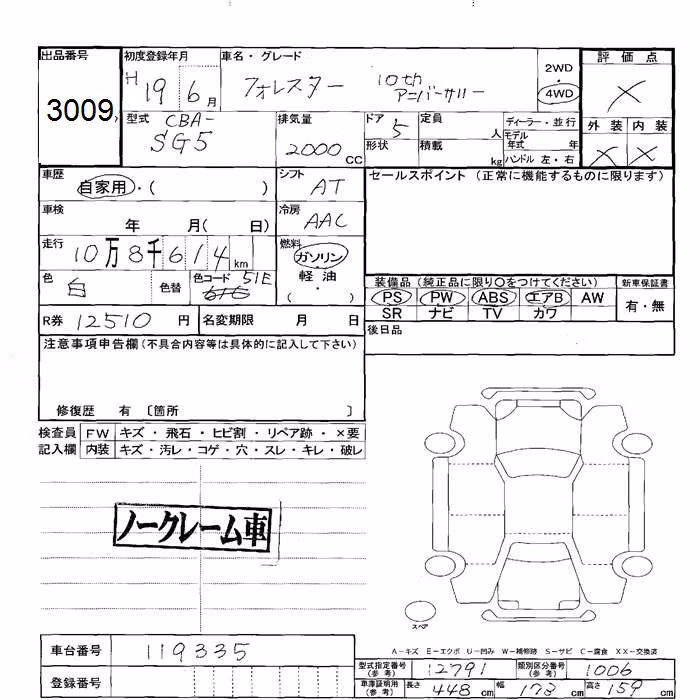 出品番号 初度登録年月 車名・グレード 2WD・4WD 評価点
3009 H 19 6月 フォレスター 10th アニバーサリー X
型式 CBA-SG5 排気量 2000 CC ドア 5 形状 定員 人 積載 kg ディーラー・並行 モデル年式 年 ハンドル 左・右 外装 X 内装 X
車歴 自家用・( ) シフト AT セールスポイント (正常に機能するものに限ります)
車検 年 月( 日) 冷房 AAC
走行 10万8千614 km 燃料 ガソリン・軽油・( )
色 白 色替 色コード 51E 装備品 (純正品に限り○をつけてください) 新車保証書
PS PW ABS エアB AW 有・無
SR ナビ TV カワ
R券 12510 円 名変期限 月 日 後日品
注意事項申告欄 (不具合内容等は具体的に記入して下さい)
修復歴 有 〔箇所 〕
検査員 FW キズ・飛石・ヒビ割・リペア跡・×要
記入欄 内装 キズ・汚レ・コゲ・穴・スレ・キレ・破レ
ノークレーム車
スペア
A-キズ E-エクボ U-凹み W-補修跡 S-サビ C-腐食 XX-交換済
車台番号 119335
型式指定番号 (参考) 12791 類別区分番号 (参考) 1006
登録番号 車庫証明用 (参考) 長さ 448 cm 幅 173 cm 高さ 159 cm